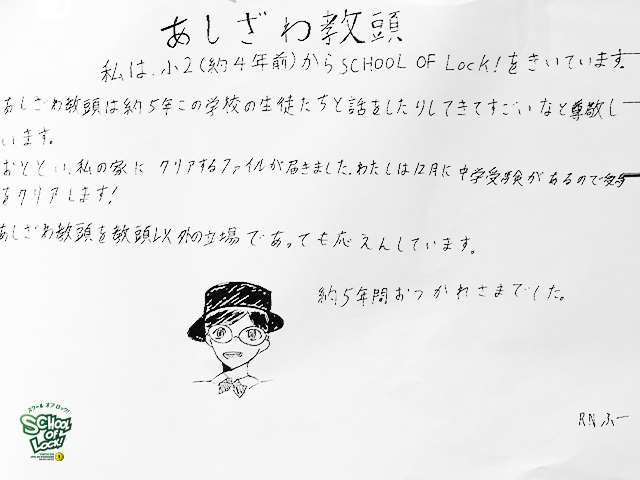 あしざわ教頭
私は、小2(約4年前)からSCHOOL OF LOCK!をきいています。
あしざわ教頭は約5年この学校の生徒たちと話をしたりしてきてすごいなと尊敬し
います。
おととい、私の家に クリアするファイルが届きました。わたしは12月に中学受験があるので
をクリアします!
あしざわ教頭を教頭以外の立場であっても応えんしています。
約5年間おつかれさまでした。
RN ふー
スクール オブ ロック!
SCHOOL OF LOCK!